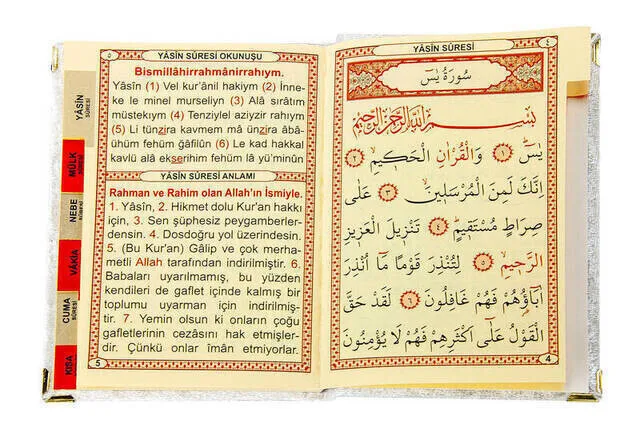 YÂSİN SÛRESİ
٤
سُورَةُ يٰسٓ
بِسْمِ اللّٰهِ الرَّحْمٰنِ الرَّحِيمِ
يٰسٓ ﴿١﴾ وَالْقُرْاٰنِ الْحَك۪يمِۙ ﴿٢﴾
اِنَّكَ لَمِنَ الْمُرْسَل۪ينَۙ ﴿٣﴾ عَلٰى
صِرَاطٍ مُسْتَق۪يمٍۜ ﴿٤﴾ تَنْز۪يلَ الْعَز۪يزِ
الرَّح۪يمِۙ ﴿٥﴾ لِتُنْذِرَ قَوْمًا مَٓا اُنْذِرَ
اٰبَٓاؤُ۬هُمْ فَهُمْ غَافِلُونَ ﴿٦﴾ لَقَدْ حَقَّ
الْقَوْلُ عَلٰٓى اَكْثَرِهِمْ فَهُمْ لَا يُؤْمِنُونَ
4
٥
YÂSİN SÛRESİ OKUNUŞU
Bismillâhirrahmânirrahıym.
Yâsîn (1) Vel kur'ânil hakiym (2) İnne-
ke le minel murseliyn (3) Alâ sırâtim
müstekıym (4) Tenziylel aziyzir rahıym
(5) Li tünzira kavmem mâ ünzira âbâ-
ühüm fehüm ğâfilûn (6) Le kad hakkal
kavlü alâ ekserihim fehüm lâ yü'minûn
YÂSİN SÛRESİ ANLAMI
Rahman ve Rahim olan Allah'ın İsmiyle.
1. Yâsîn, 2. Hikmet dolu Kur'an hakkı
için, 3. Sen şüphesiz peygamberler-
densin. 4. Dosdoğru yol üzerindesin.
5. (Bu Kur'an) Gâlip ve çok merha-
metli Allah tarafından indirilmiştir. 6.
Babaları uyarılmamış, bu yüzden
kendileri de gaflet içinde kalmış bir
toplumu uyarman için indirilmiş-
tir. 7. Yemin olsun ki onların çoğu
gafletlerinin cezâsını hak etmişler-
dir. Çünkü onlar îmân etmiyorlar.
5
YÂSİN
SÛRESİ
MÜLK
SÛRESİ
NEBE
SÛRESİ
VÂKIA
CUMA
SÛRESİ
KISA